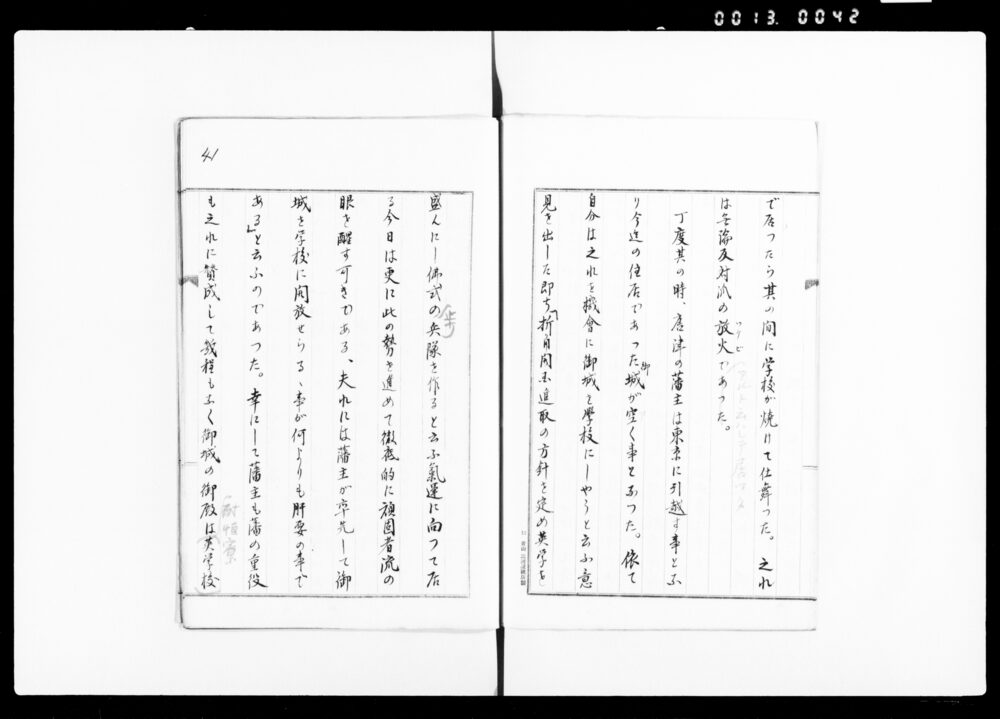 0013.0042
で居つたら其の間に学校が焼けて仕舞つた。之れ
は無論反対派の放火であつた。
丁度其の時、唐津の藩主は東京に引越す事とな
り今迄の住居であつた御城が空く事となつた。依て
自分は之れを機會に御城を學校にしやうと云ふ意
見を出した即ち「折角開国進取の方針を定め英学を
41
盛んにし佛式の兵隊を作ると云ふ氣運に向つて居
歩
る今日は更に此の勢を進めて徹底的に頑固者流の
眼を醒す可きである、夫れには藩主が率先して御
城を学校に開放せらるゝ事が何よりも肝要の事で
ある」と云ふのであつた。幸にして藩主も藩の重役
も之れに賛成して幾程もなく御城の御殿は英学校
耐恒寮